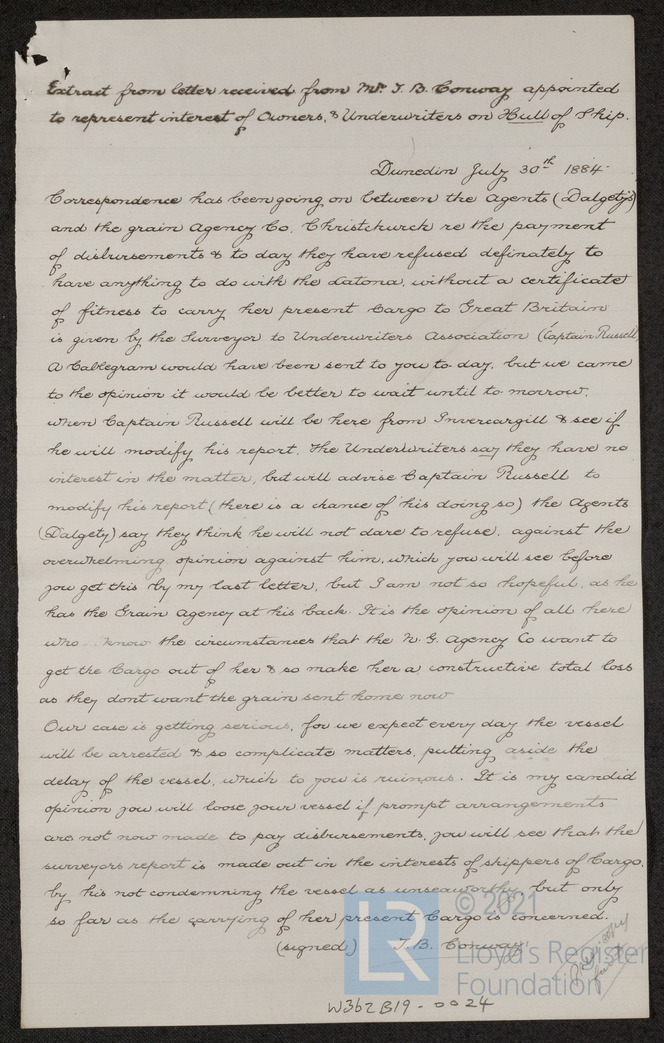 Extract from letter received from Mr. T. B. Conway appointed
to represent interest of Owners, & Underwriters on Hull of Ship.
Dunedin July 30th 1884
Correspondence has been going on between the Agents (Dalgety's)
and the grain Agency Co. Christchurch re the payment
of disbursements & to day they have refused definately to
have anything to do with the Latona, without a certificate
of fitness to carry her present Cargo to Great Britain
is given by the Surveyor to Underwriters Association (Captain Russell
A Cablegram would have been sent to you to day, but we came
to the opinion it would be better to wait until to morrow,
when Captain Russell will be here from Invercargill & see if
he will modify his report. The Underwriters say they have no
interest in the matter, but will advise Captain Russell to
modify his report (there is a chance of his doing so) the Agents
(Dalgety) say they think he will not dare to refuse, against the
overwhelming opinion against him, which you will see before
you get this by my last letter, but I am not so hopeful, as he
has the Grain Agency at his back. It is the opinion of all here
who know the circumstances that the N. G. Agency Co want to
get the Cargo out of her & so make her a constructive total loss
as they dont want the grain sent home now
Our case is getting serious, for we expect every day the vessel
will be arrested & so complicate matters, putting aside the
delay of the vessel, which to you is ruinous. It is my candid
opinion you will loose your vessel if prompt arrangements
are not now made to pay disbursements, you will see that the
surveyors report is made out in the interests of shippers of Cargo,
by his not condemning the vessel as unseaworthy, but only
so far as the carrying of her present Cargo is concerned.
(signed) T. B. Conway
© 2021
Lloyd's Register
Foundation
LR
W362B19-0024